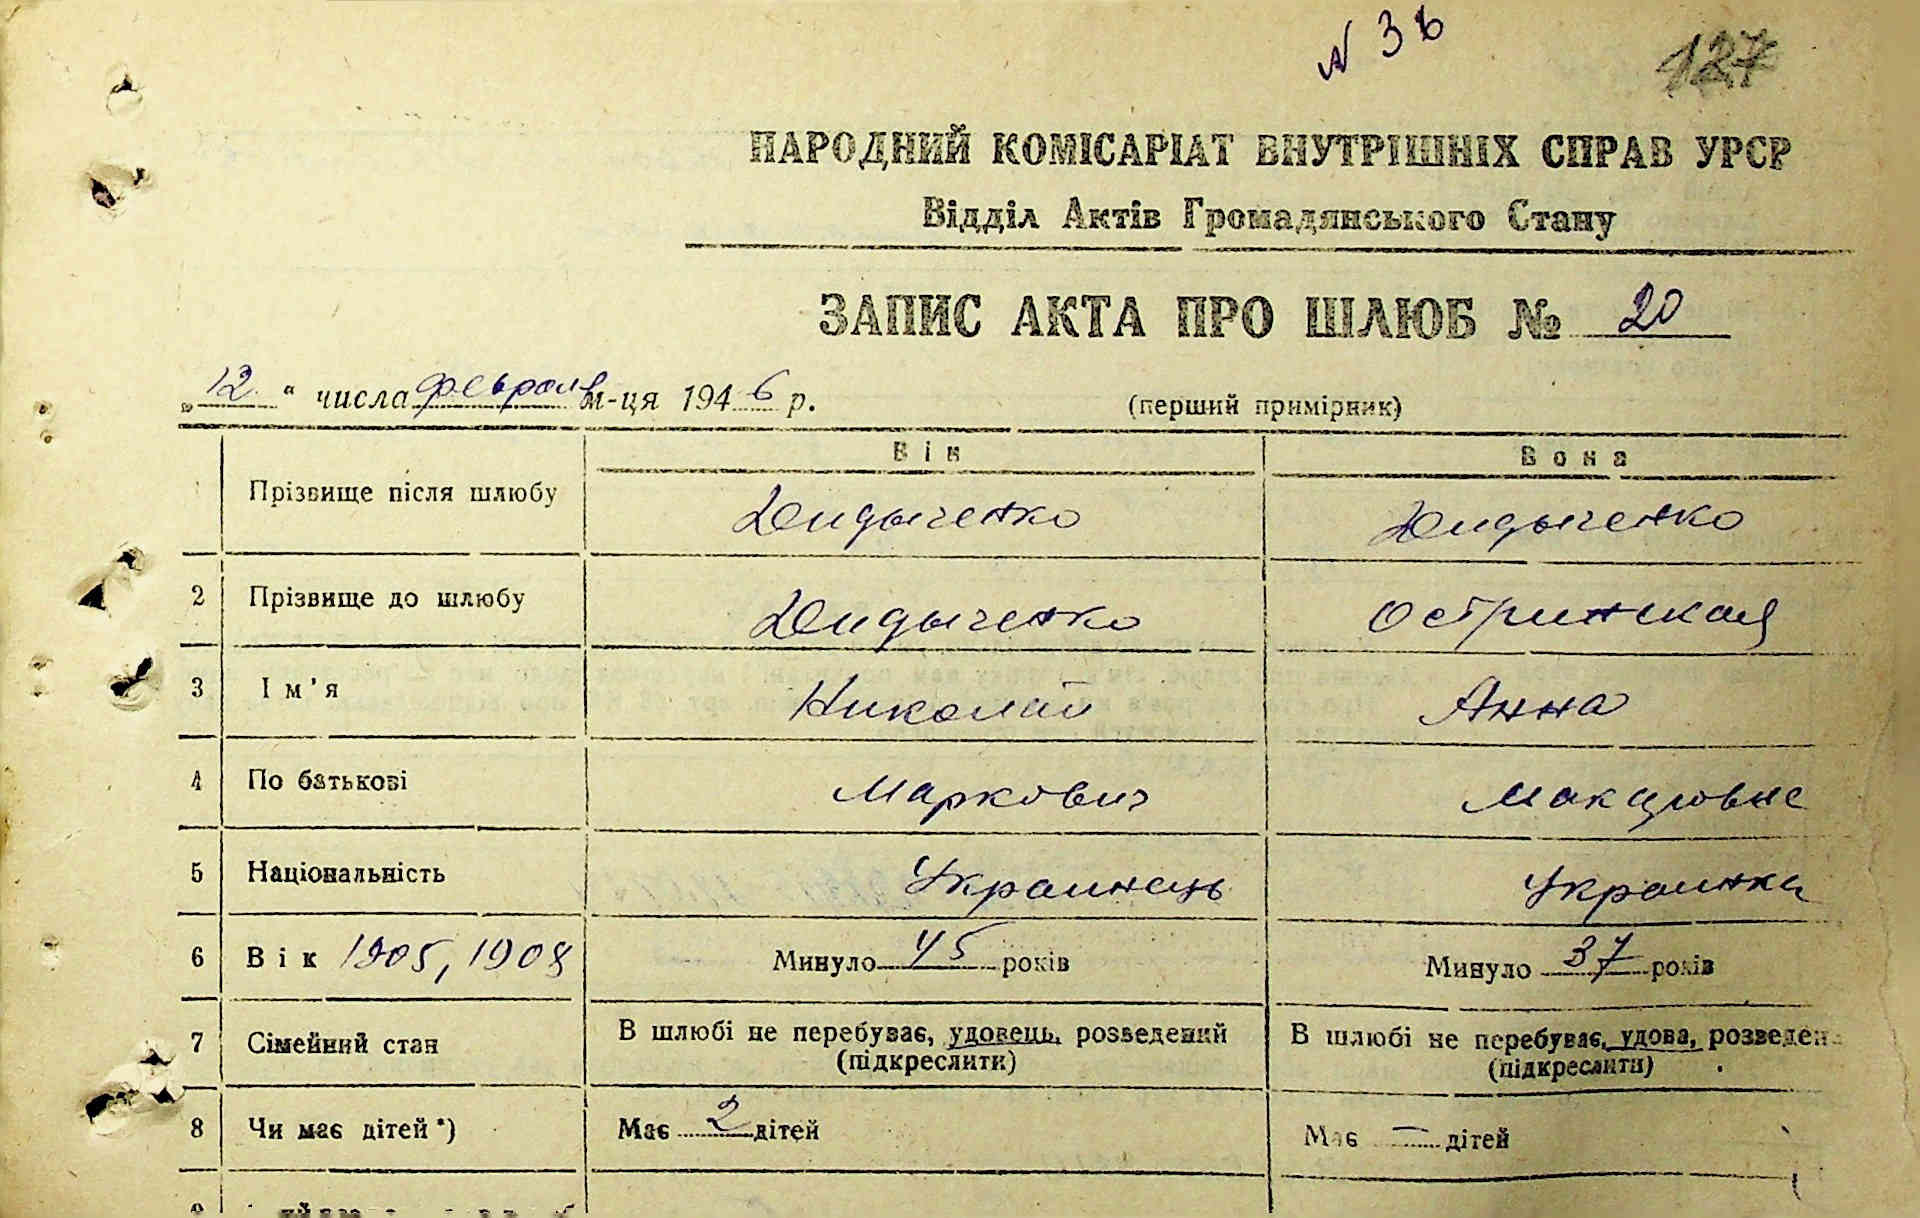 № 36
127
НАРОДНИЙ КОМІСАРІАТ ВНУТРІШНІХ СПРАВ УРСР
Відділ Актів Громадянського Стану
ЗАПИС АКТА ПРО ШЛЮБ № 20
„12“ числа февраля м-ця 1946 р. (перший примірник)
Він Вона
Прізвище після шлюбу Дидыченко Дидыченко
2 Прізвище до шлюбу Дидыченко Остринская
3 Ім'я Николай Анна
4 По батькові Маркович
5 Національність Украинець Украинка
6 Вік 1905, 1908 Минуло 45 років Минуло 37 років
7 Сімейний стан В шлюбі не перебуває, удовець, розведений В шлюбі не перебуває, удова, розведен
(підкреслити) (підкреслити)
8 Чи має дітей*) Має 2 дітей Має — дітей